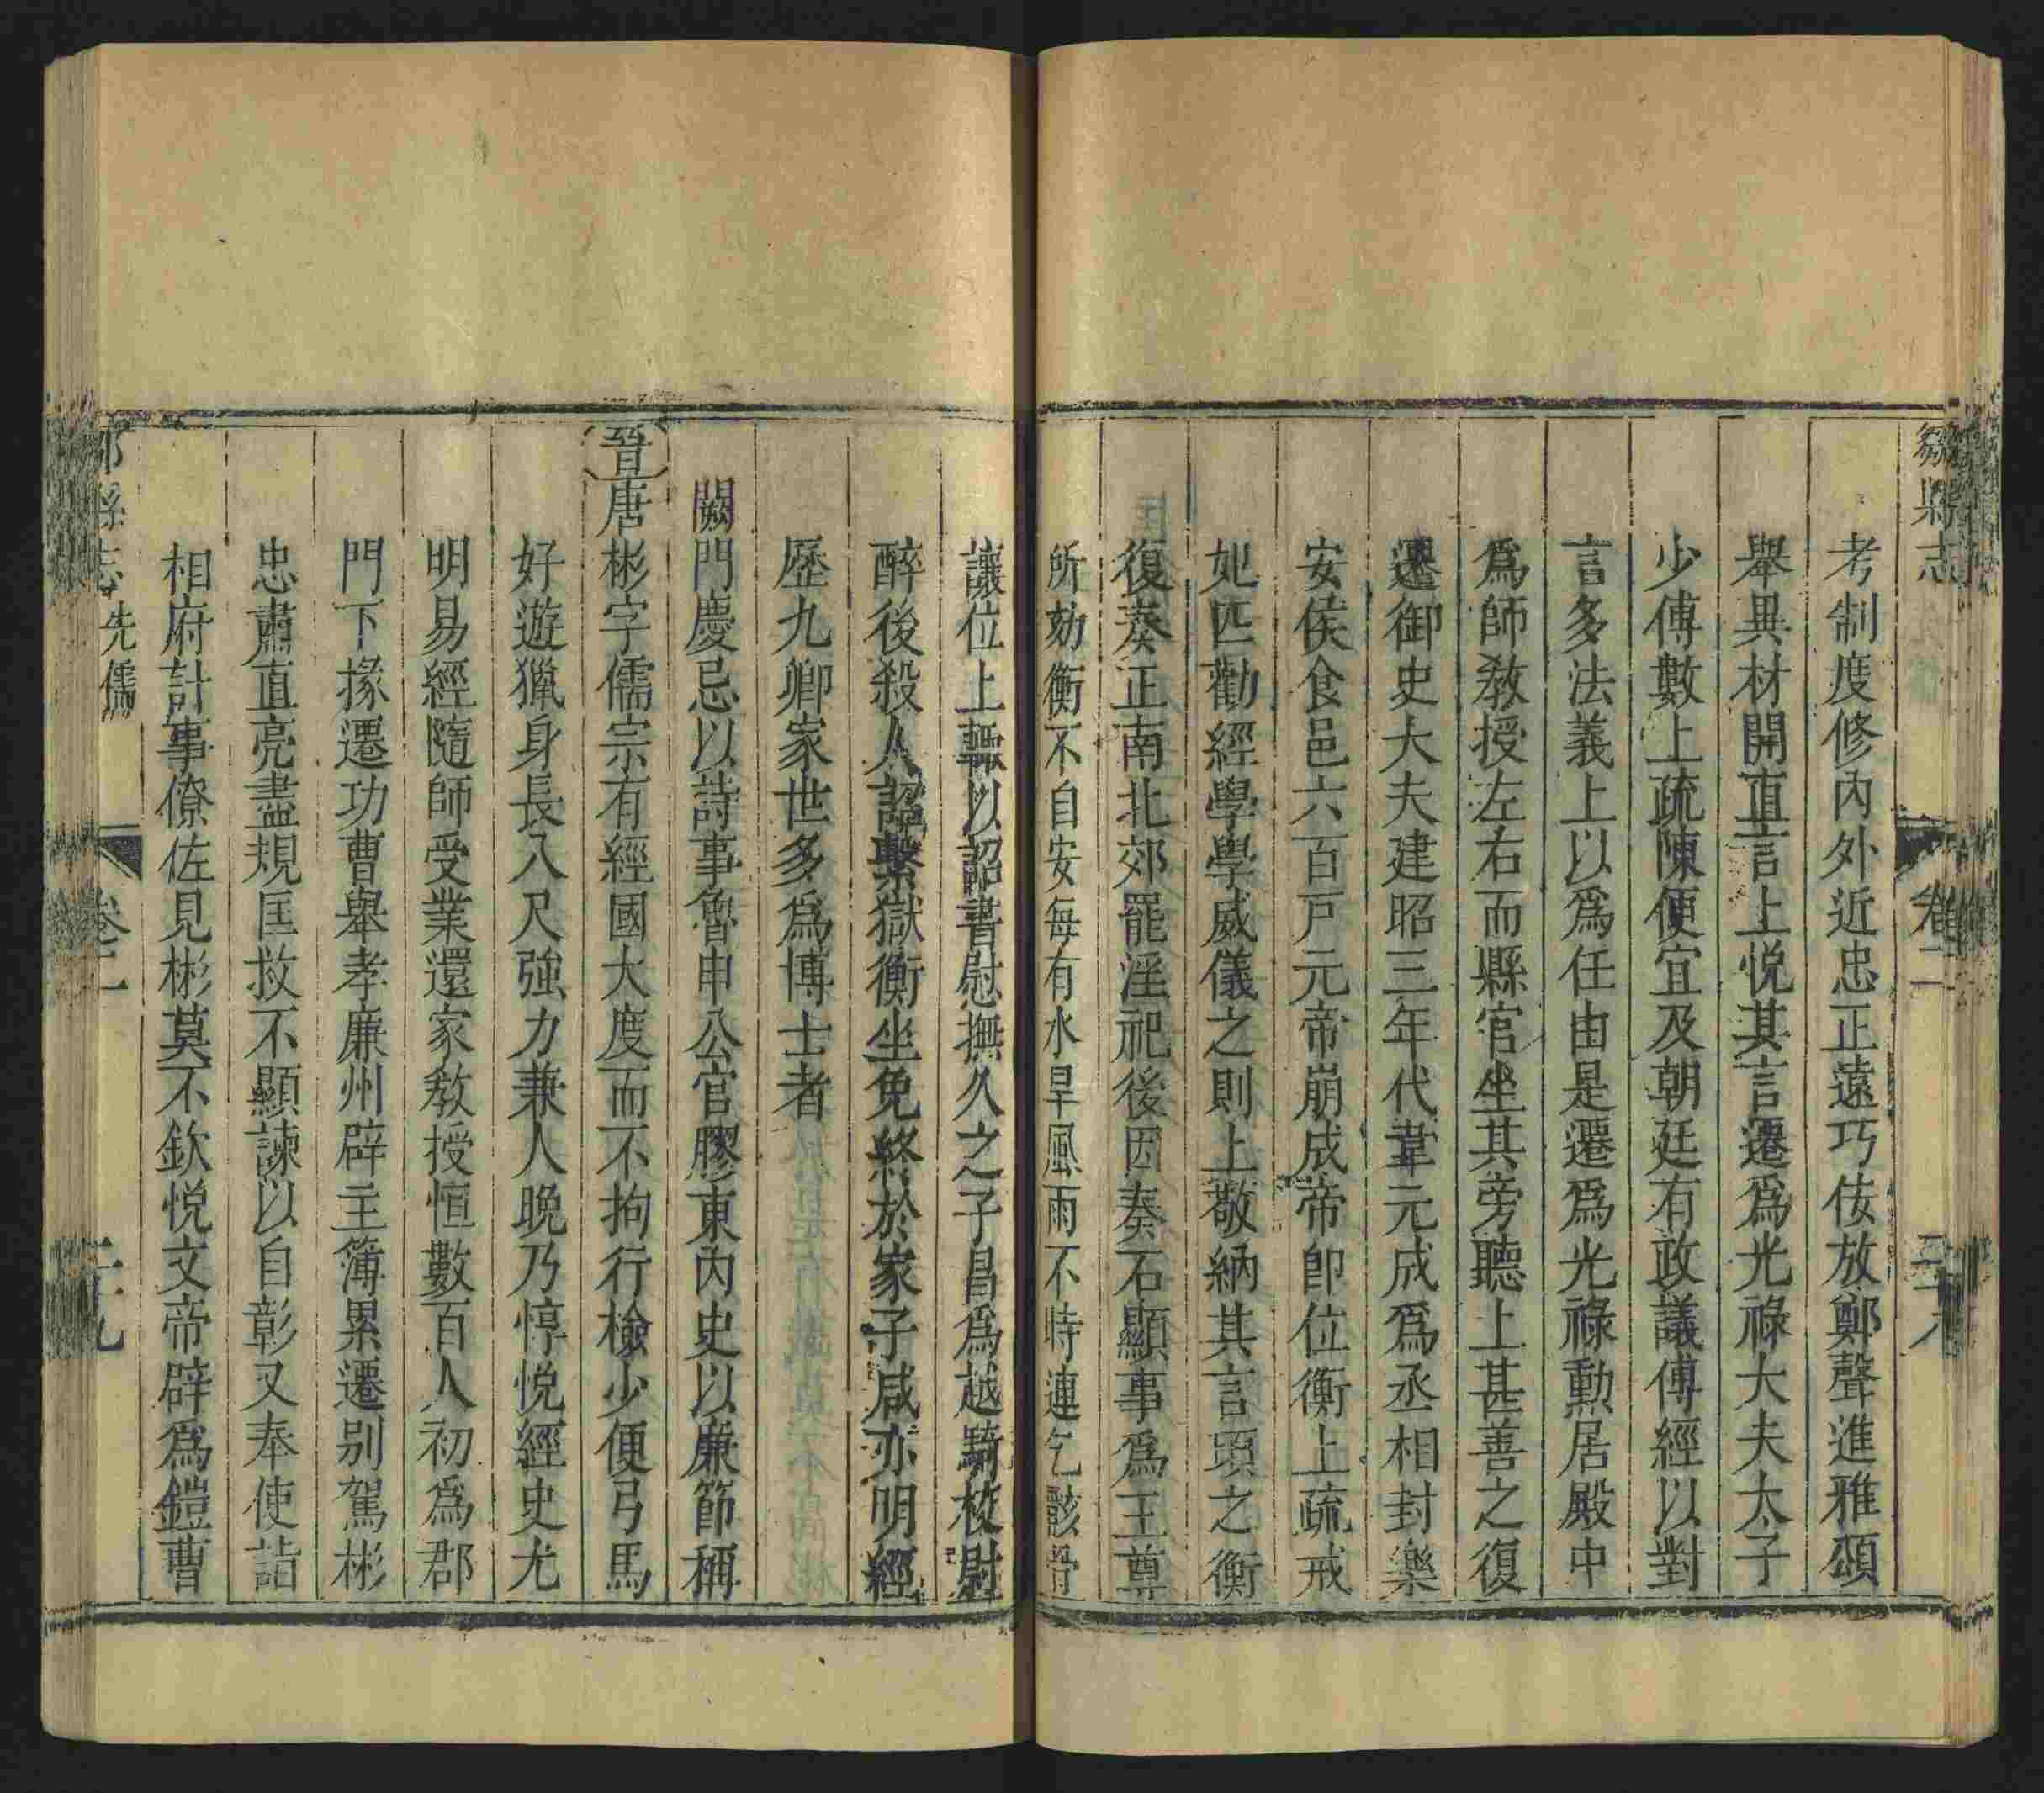 鄒縣志
卷二
二十八
考制度修內外近忠正遠巧佞放鄭聲進雅頌
舉異材開直言上悅其言遷爲光祿大夫太子
少傅數上疏陳便宜及朝廷有政議傅經以對
言多法義上以爲任由是遷爲光祿勳居殿中
爲師教授左右而縣官坐其旁聽上甚善之復
遷御史大夫建昭三年代韋元成爲丞相封樂
安侯食邑六百戸元帝崩成帝卽位衡上疏戒
妃匹勸經學學威儀之則上敬納其言頃之衡
復奏正南北郊罷淫祀後因奏石顯事爲王尊
所劾衡不自安每有水旱風雨不時連乞骸骨
讓位上輒以詔書慰撫久之子昌爲越騎校尉
醉後殺人詔繫獄衡坐免終於家子咸亦明經
歷九卿家世多爲博士者
闕門慶忌以詩事魯申公官膠東內史以廉節稱
晉唐彬字儒宗有經國大度而不拘行檢少便弓馬
好遊獵身長八尺強力兼人晚乃惇悅經史尤
明易經隨師受業還家教授恒數百人初爲郡
門下掾遷功曹舉孝廉州辟主簿累遷别駕彬
忠肅直亮盡規匡救不顯諫以自彰又奉使詣
相府計事僚佐見彬莫不欽悅文帝辟爲鎧曹
縣志
先儒
卷二
二十九